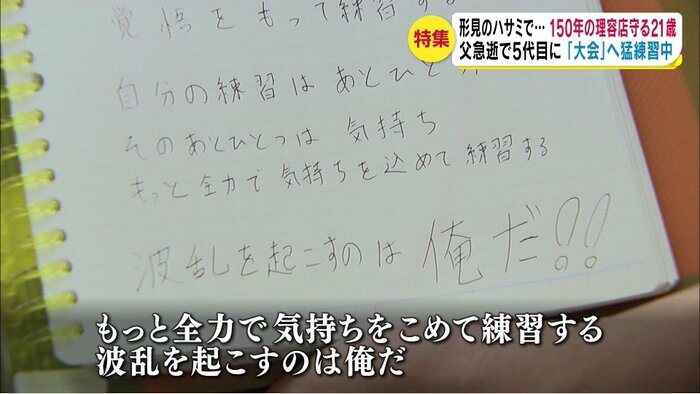 特集
形見のハサミで… 150年の理容店守る21歳
父急逝で5代目に 「大会」へ猛練習中
覚悟をもって練習する
自分の練習はあとひと
そのあとひとつは 気持ち
もっと全力で気持ちを込めて練習する
波乱を起こすのは 俺だ!!
もっと全力で気持ちをこめて練習する
波乱を起こすのは俺だ